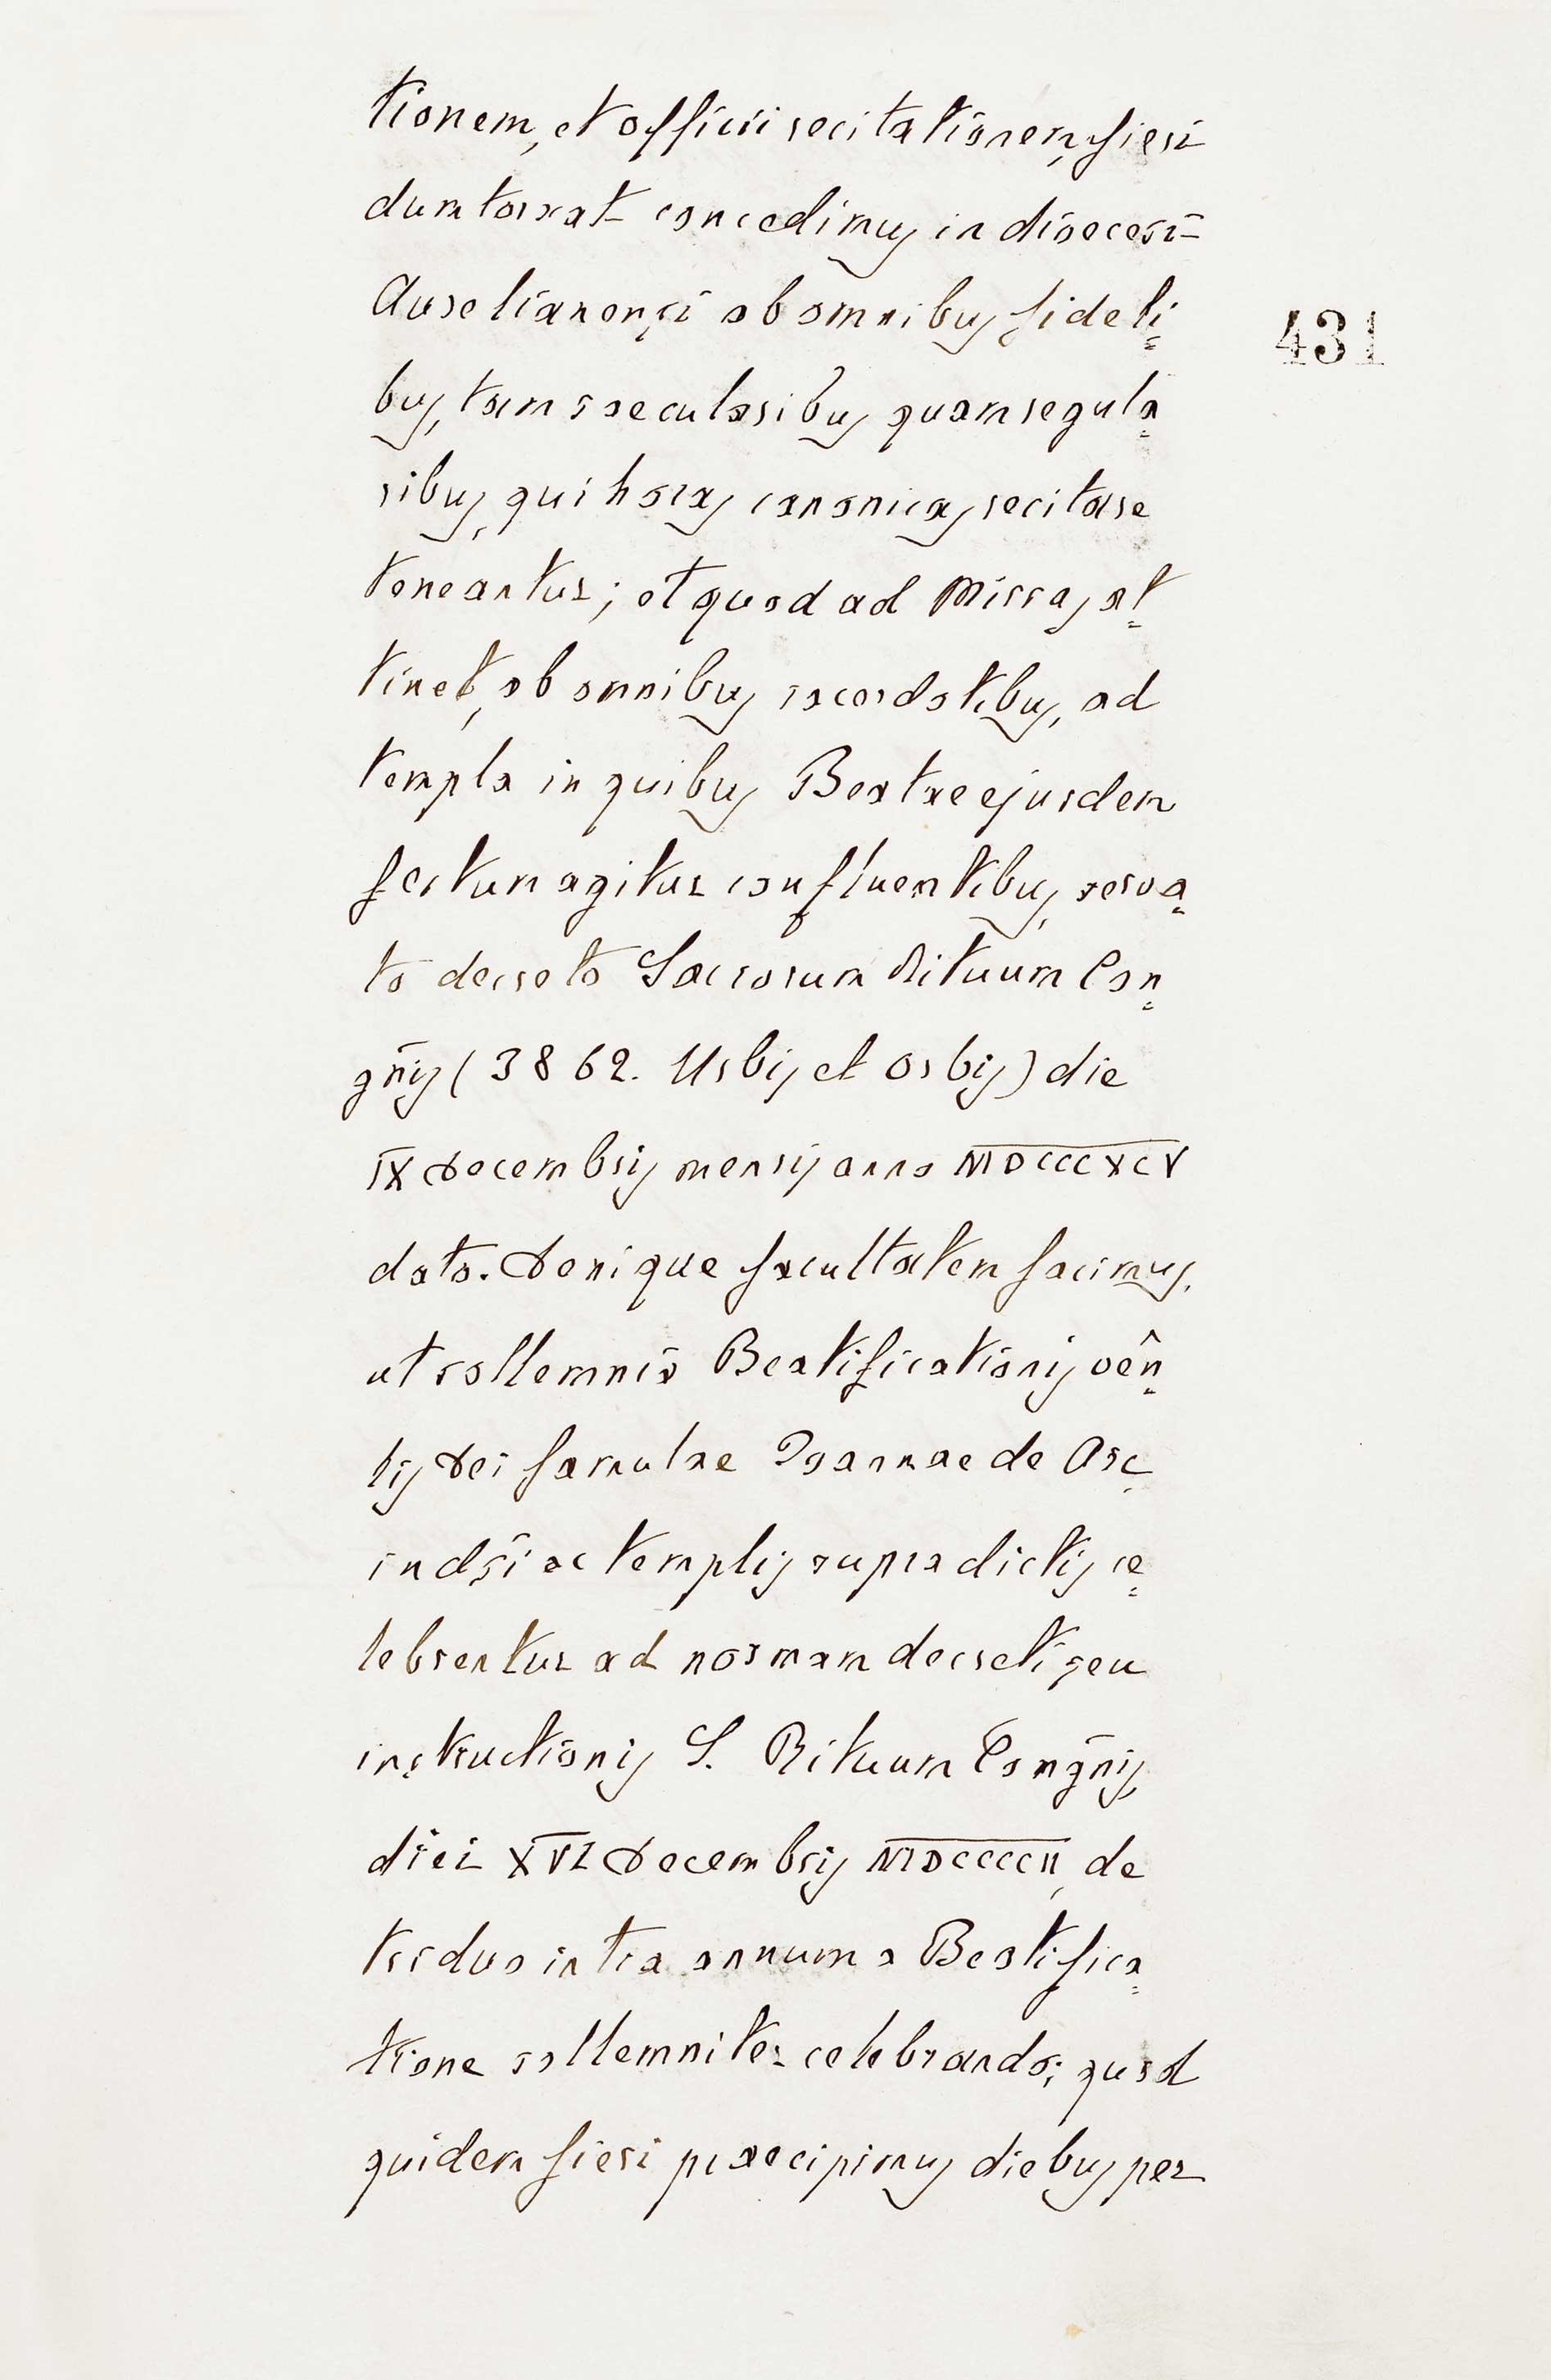 tionem, et officii recitationem, fieri
dumtaxat concedimus in dioecesi
Aurelianensi ab omnibus fideli=
bus, tam saecularibus quam regula=
ribus, qui horas canonicas recitare
teneantur; et quod ad Missas at=
tinet, ab omnibus sacerdotibus, ad
templa in quibus Beatae ejusdem
festum agitur confluentibus, serva=
to decreto Sacrorum Rituum Con=
gñis (3862. Urbis et Orbis) die
IX Decembris mensis anno MDCCCXCV
dato. Denique facultatem facimus,
ut sollemnia Beatificationis vên=
lis Dei famulae Ioannae de Arc,
in dsi ac templis supradictis ce=
lebrentur ad normam decreti seu
instructionis S. Rituum Congñis,
431
diei XVI Decembris MDCCCCII, de
triduo intra annum a Beatifica=
tione sollemniter celebrando; quod
quidem fieri praecipimus diebus per